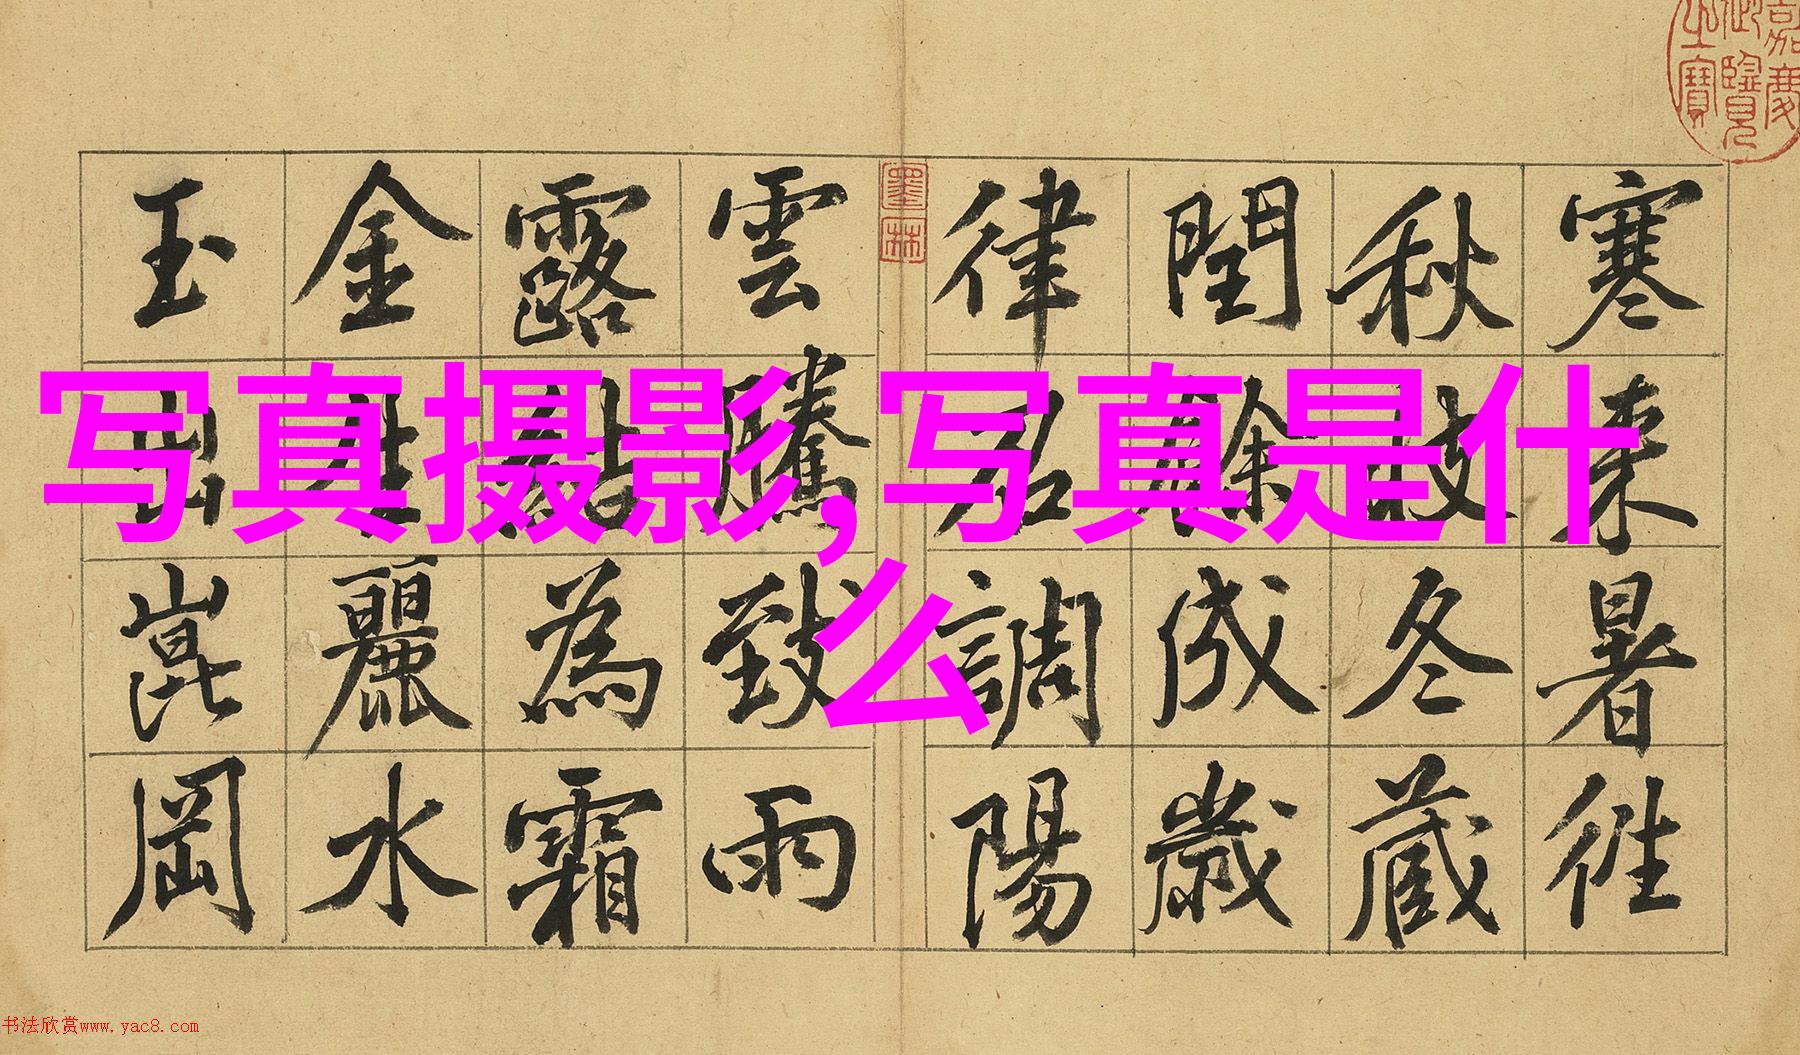 写真摄影,写真是什
么
寒来暑徃
秋收冬蔵
閏餘成歲
律召調陽
雲騰致雨
露結為霜
金生麗水
玉出崑岡
嘉慶御覽之寶
墨林
书法欣赏www.yac8.com